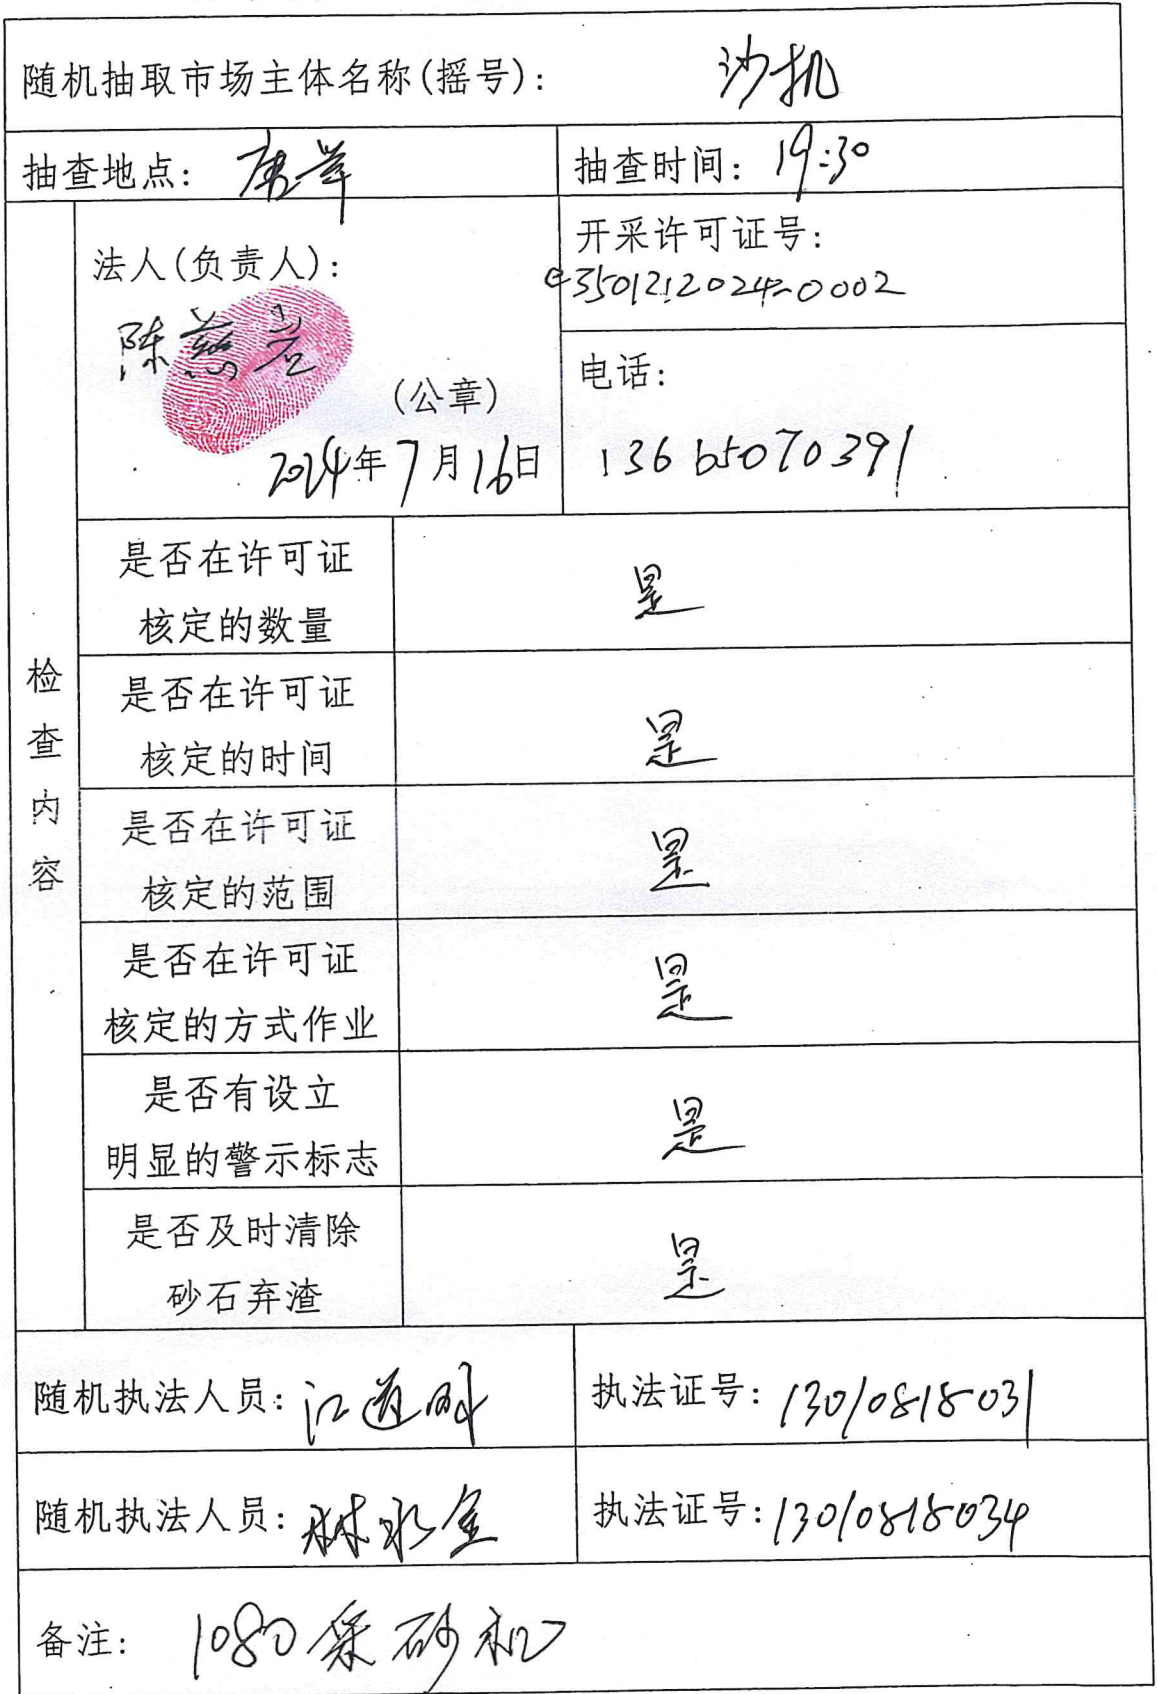 随机抽取市场主体名称(摇号): 沙机
抽查地点: 唐举
抽查时间: 19:30
法人(负责人):
陈慈岩
(公章)
2024年7月16日
开采许可证号:
e3501212024-0002
电话:
13665070391
检查内容
是否在许可证
核定的数量
是
是否在许可证
核定的时间
是
是否在许可证
核定的范围
是
是否在许可证
核定的方式作业
是
是否有设立
明显的警示标志
是
是否及时清除
砂石弃渣
是
随机执法人员: 江道
执法证号: 13010818031
随机执法人员: 林永金
执法证号: 13010818034
备注: 1080采砂机